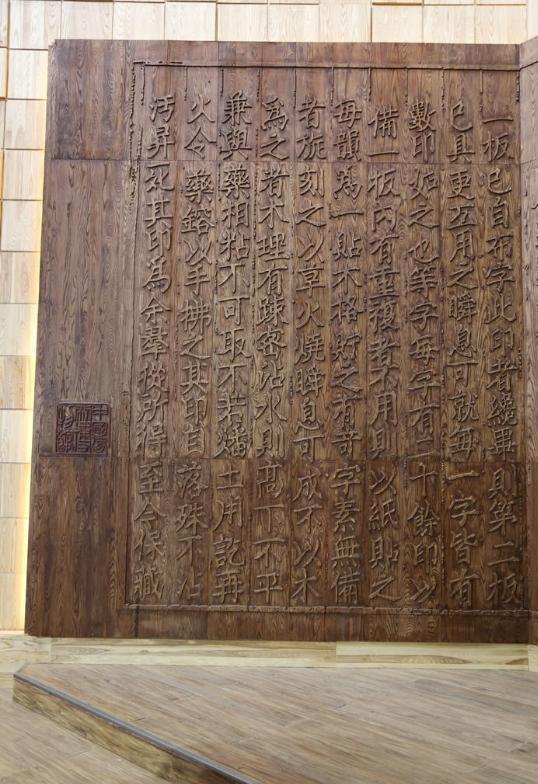 一板已自布字此印者纔畢則第二板
已具更互用之瞬息可就每一字皆有
數印如之也等字每字有二十餘印以
備一板內有重複者不用則以紙貼之
每韻為一貼木格貯之有奇字素無備
者旋刻之以草火燒瞬息可成不以木
為之者木理有疎密沾水則高下不平
兼與藥相粘不可取不若燔土用訖再
火令藥鎔以手拂之其印自落殊不沾
汚昇死其印為余羣從所得至今保藏